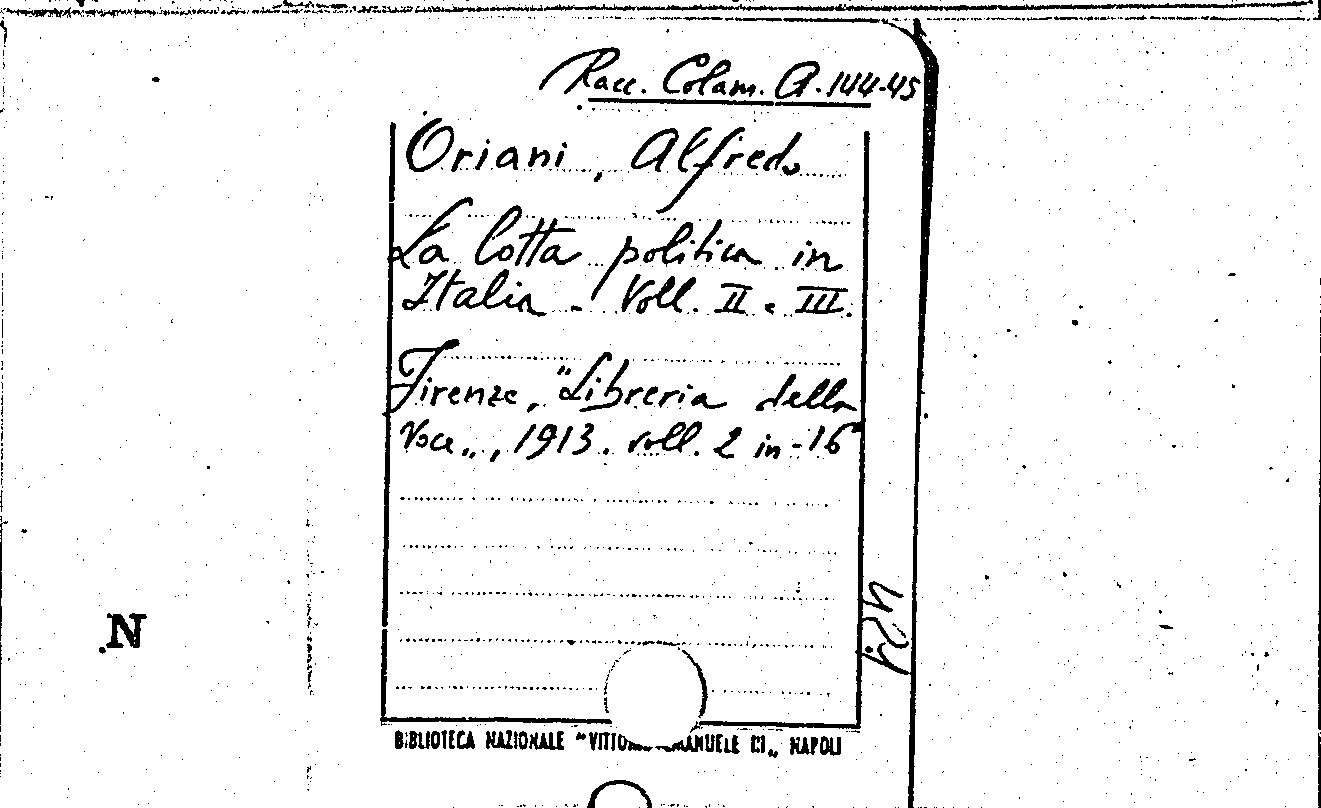 Racc. Colam. A. 144-45
Oriani, Alfredo
La lotta politica in
Italia - Voll. II e III.
Firenze, "Libreria della
Voce„, 1913. voll. 2 in-16°
N
BIBLIOTECA NAZIONALE "VITTORIO EMANUELE III„ NAPOLI